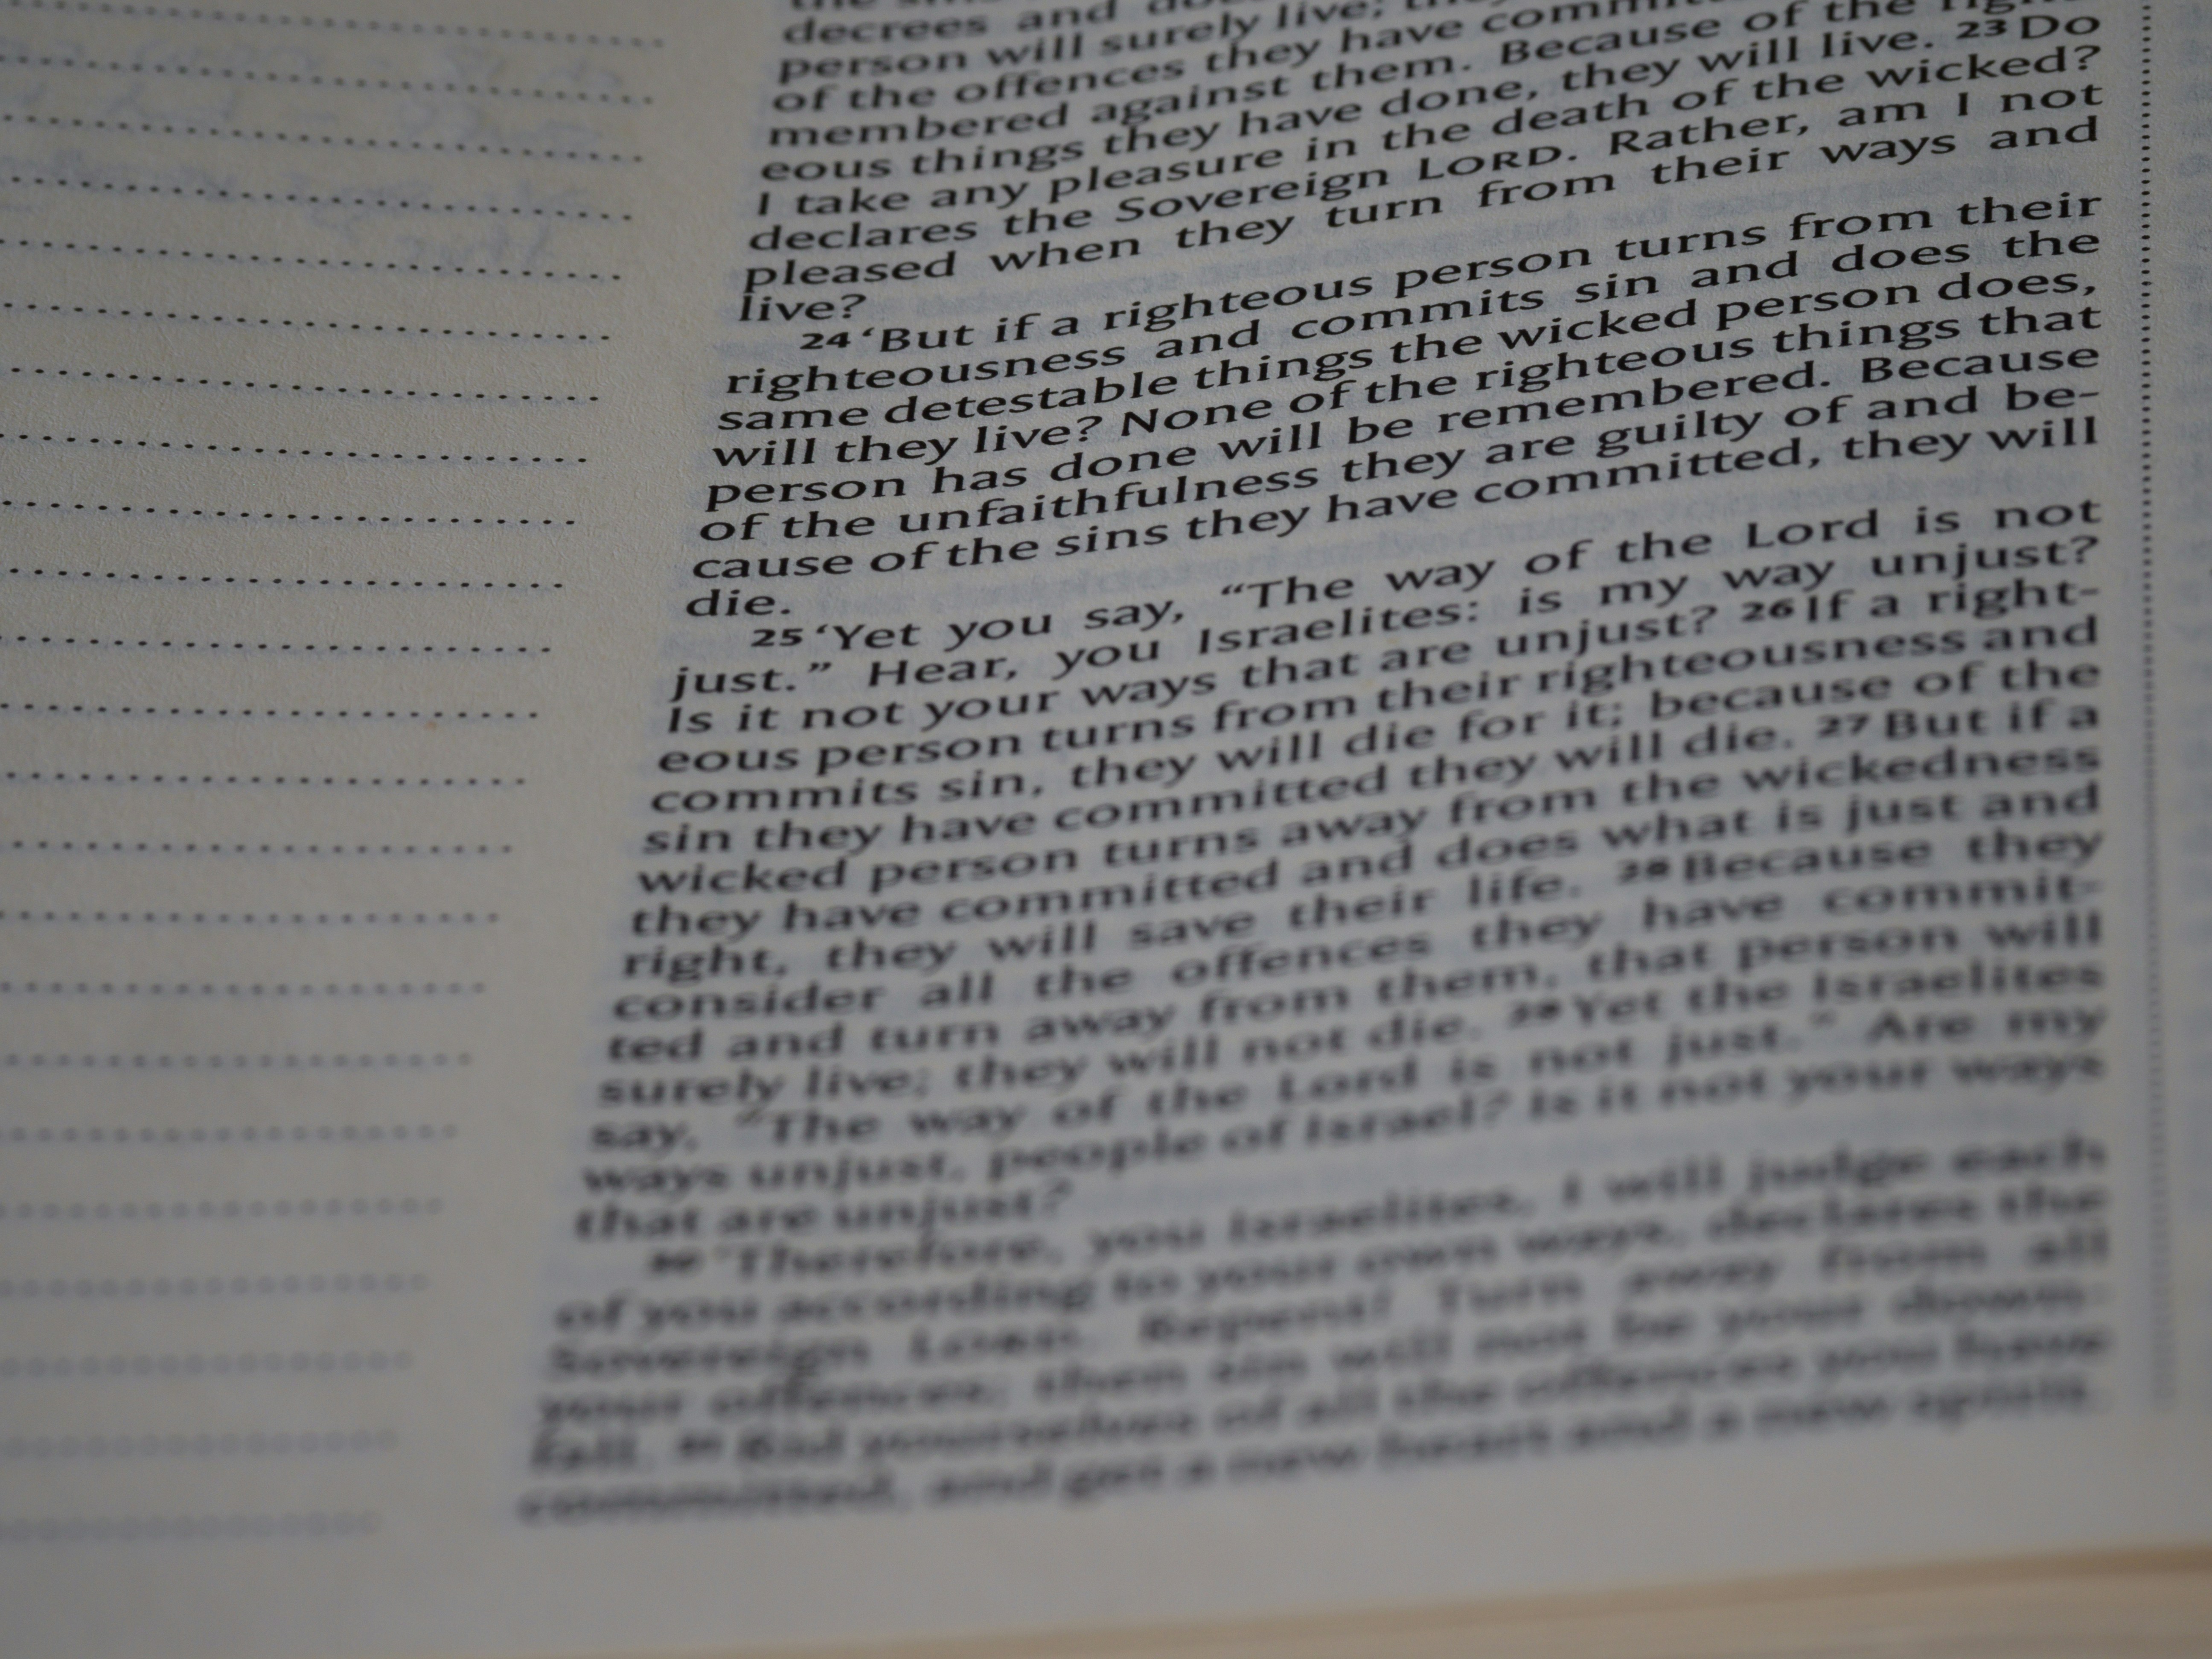 decrees and
person will surely live;
of the offences they have
membered against them. Because of the
eous things they have done, they will live. 23 Do
I take any pleasure in the death of the wicked?
declares the Sovereign LORD. Rather, am I not
pleased when they turn from their ways and
live?
24 ‘But if a righteous person turns from their
righteousness and commits sin and does the
same detestable things the wicked person does,
will they live? None of the righteous things that
person has done will be remembered. Because
of the unfaithfulness they are guilty of and be-
cause of the sins they have committed, they will
die.
25 ‘Yet you say, “The way of the Lord is not
just.” Hear, you Israelites: is my way unjust?
Is it not your ways that are unjust? 26 If a right-
eous person turns from their righteousness and
commits sin, they will die for it; because of the
sin they have committed they will die. 27 But if a
wicked person turns away from the wickedness
they have committed and does what is just and
right, they will save their life. 28 Because they
consider all the offences they have commit-
ted and turn away from them, that person will
surely live; they will not die. 29 Yet the Israelites
say, “The way of the Lord is not just.” Are my
ways unjust, people of Israel? Is it not your ways
that are unjust?
30 ‘Therefore, you Israelites, I will judge each
of you according to your own ways, declares the
Sovereign LORD. Repent! Turn away from all
your offences; then sin will not be your down-
fall. 31 Rid yourselves of all the offences you have
committed, and get a new heart and a new spirit.